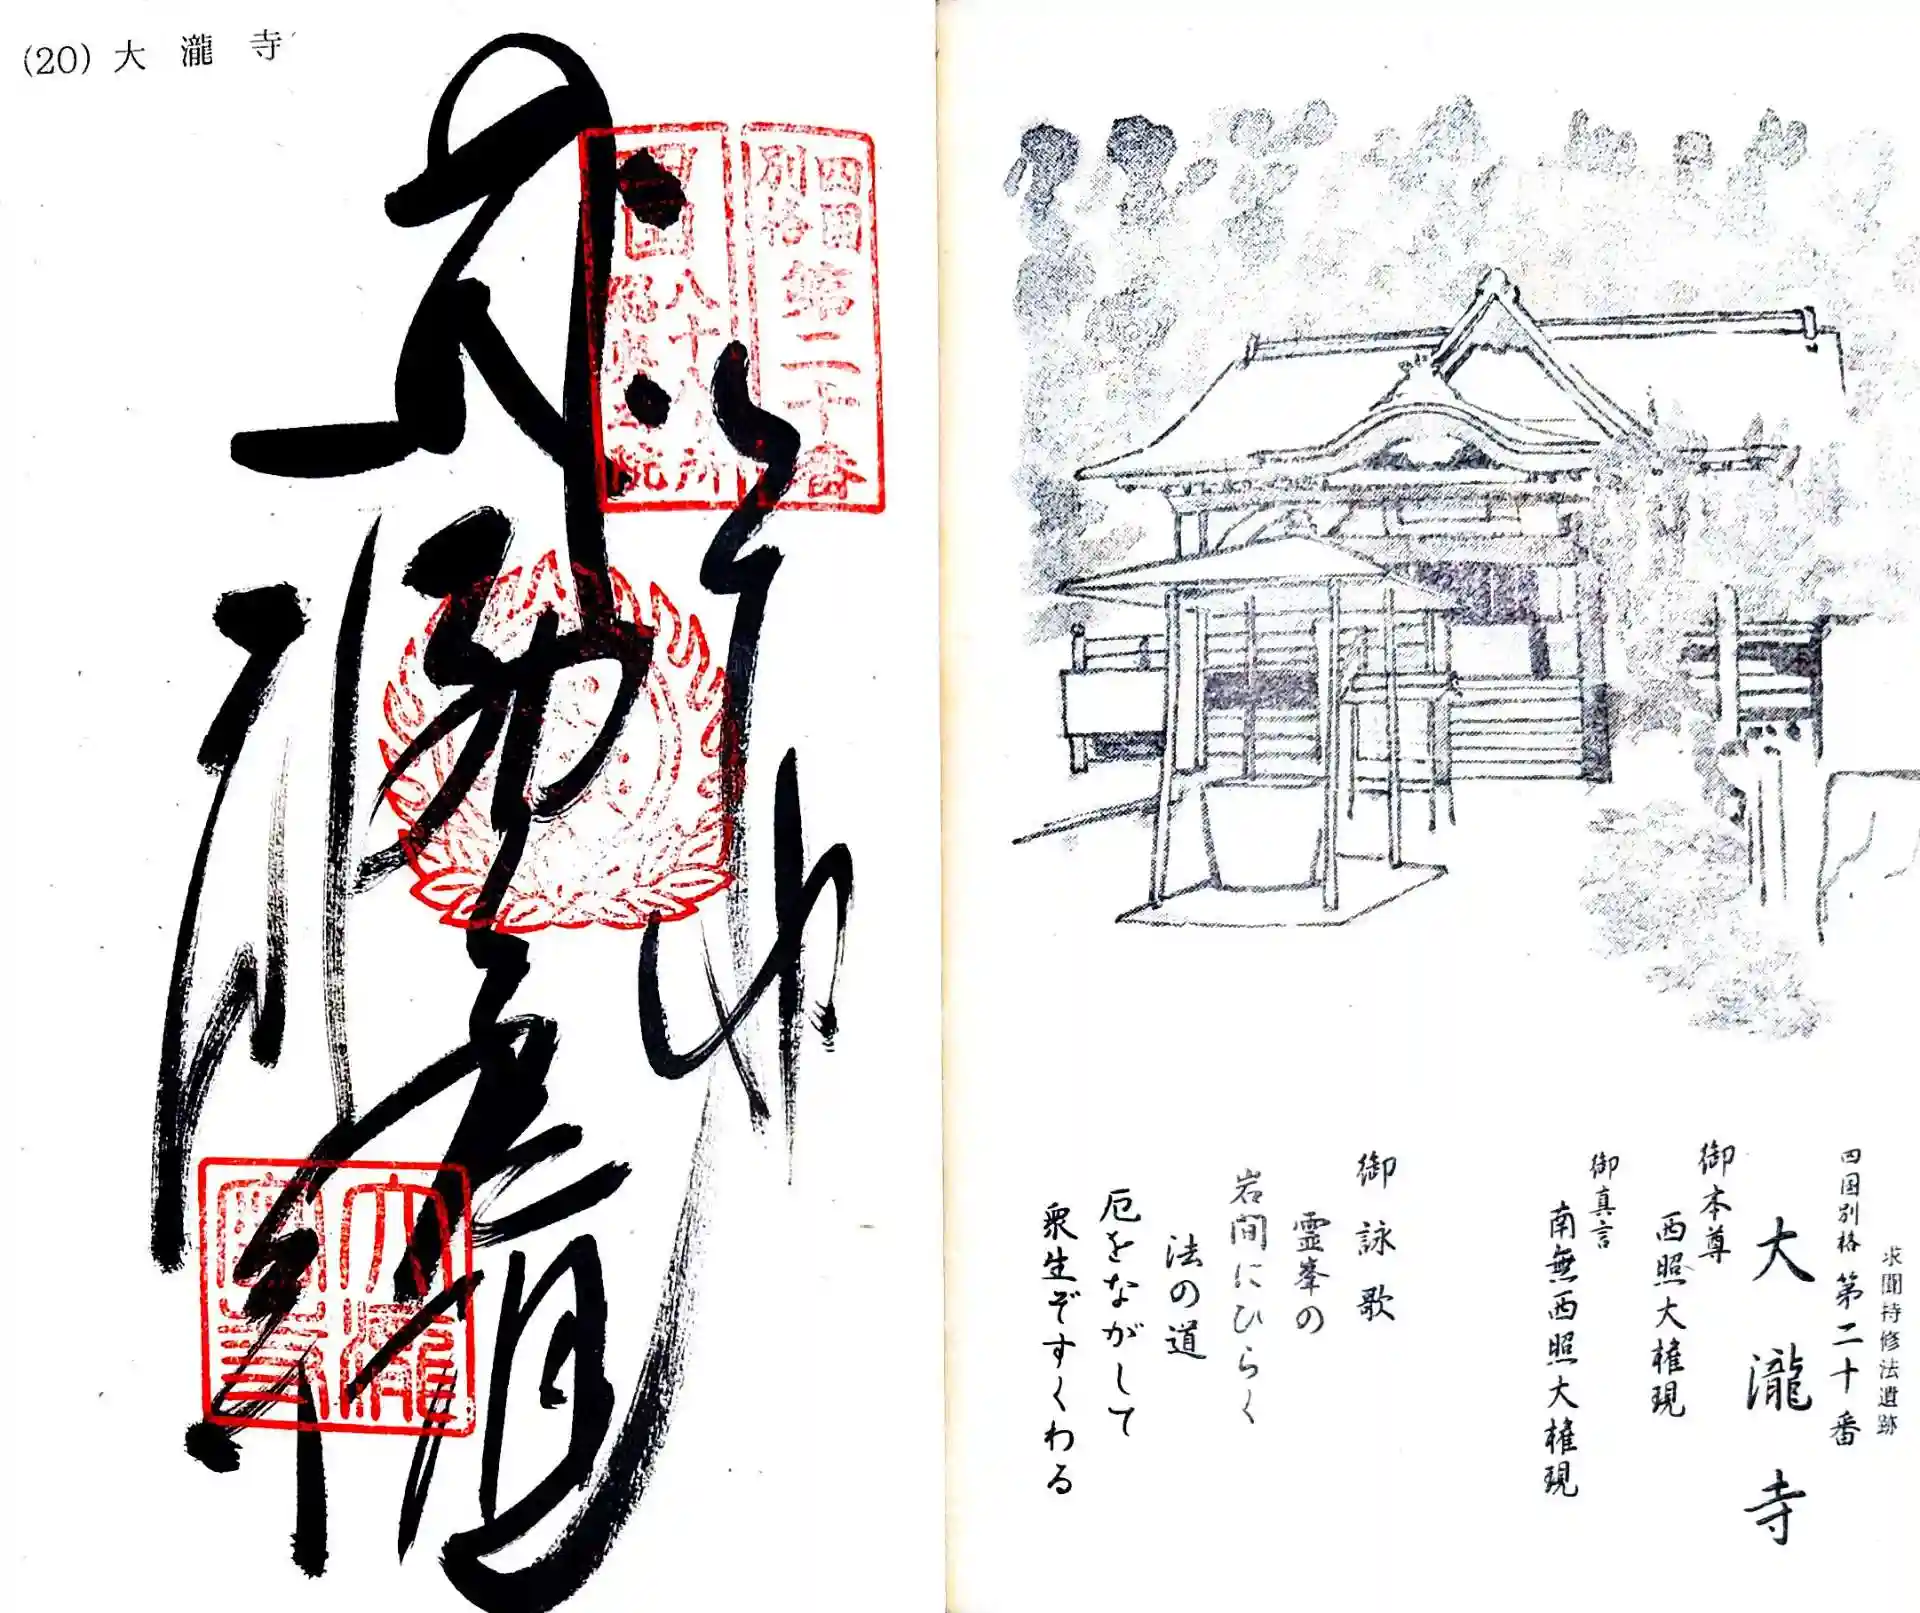 (20) 大瀧寺
四国
別格
第二十番
四国
八十八所
総奥之院
大瀧
求聞持修法遺跡
四国別格 第二十番
大瀧寺
御本尊
西照大権現
御真言
南無西照大権現
御詠歌
霊峯の
岩間にひらく
法の道
厄をながして
衆生ぞすくわる